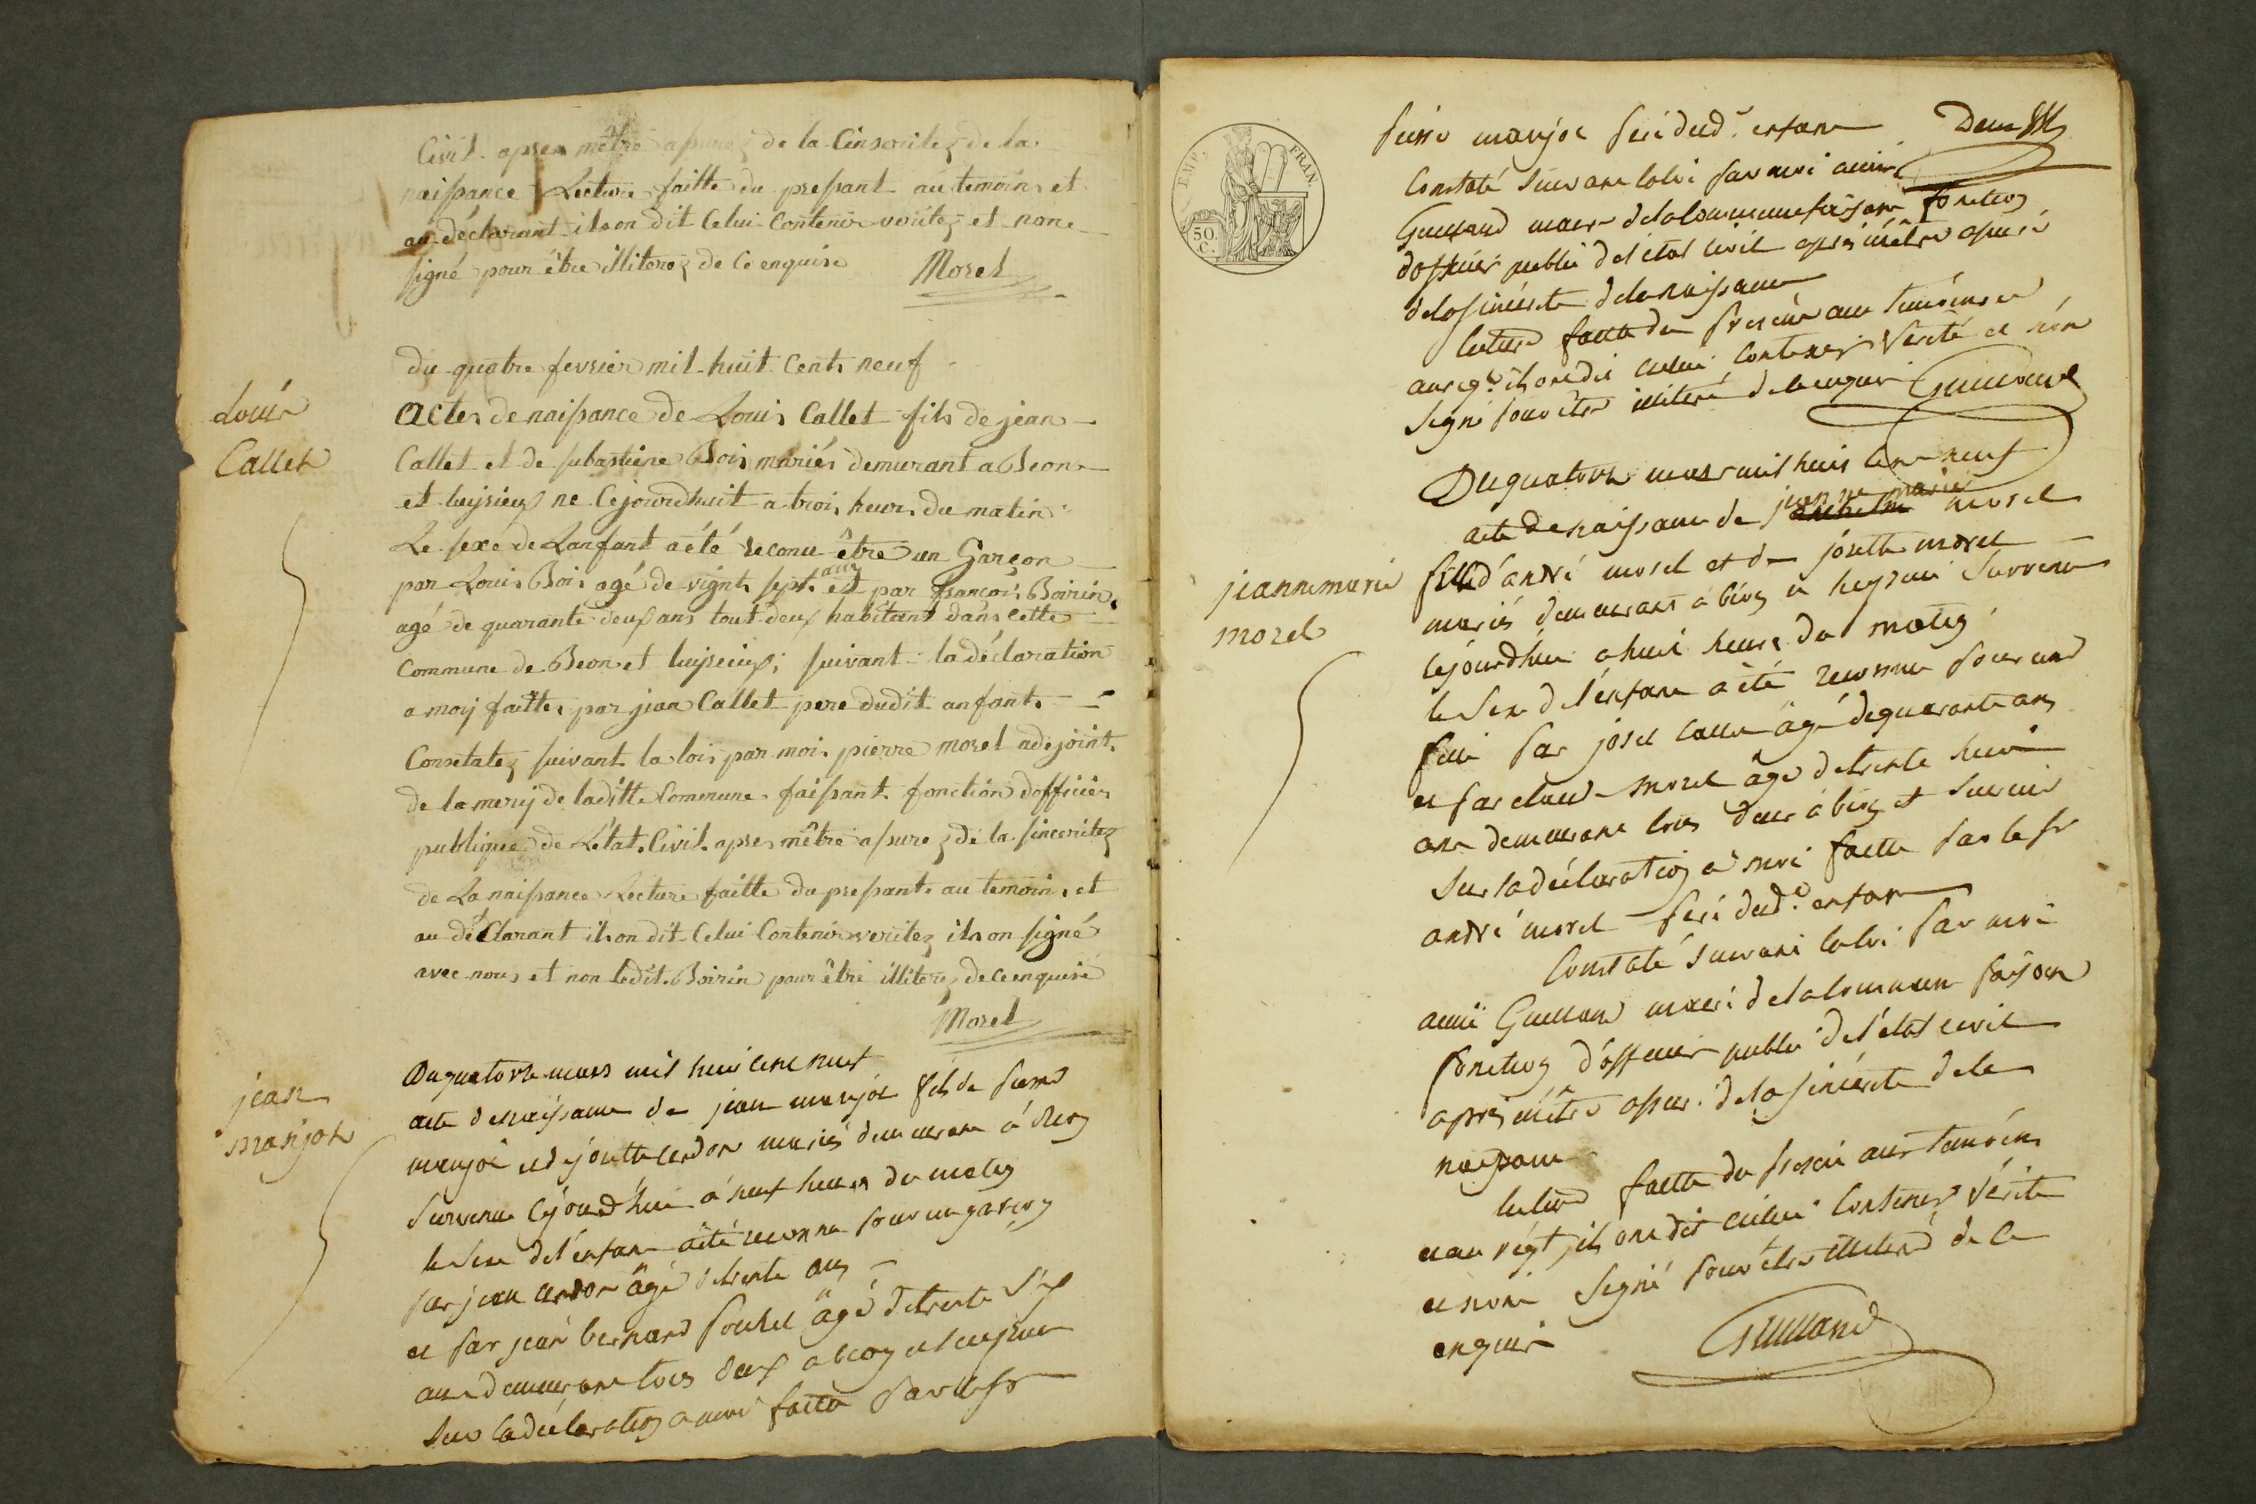 Civil apres mêtre assurez de la Cinseritez de la
naissance Lecture faitte du pressant au temoins et
au déclarant ils on dit Celui Contenir veritez et none
signé pour être illiterez de Ce enquise Morel
Louis
Callet
du quatre fevrier mil huit Cents neuf
Actes de naissance de Louis Callet fils de jean
Callet et de sebastiene Bois mariés demurant a Beon
et luysieux ne Cejourdhuit a trois heurs du matin
Le sexe de Lanfant a été reconu être un Garçon
par Louis Bois agé de vignt sept ans et par françois Boirin
agé de quarante deux ans tout deux habitant dans cette
Commune de Beon et luyseiux suivant la déclaration
a moij faitte par jean Callet pere dudit anfant
Constatez suivant la lois par moi pierre morel adejoint
de la merij de laditte Commune faissant fonction dofficier
publique de Létat Civil apres mêtre assurez de la sinceritez
de La naissance Lecture faitte du pressant au temoins et
au déClarant ils on dit Celui Contenir veritez ils on signé
avec nous et non ledit Boirin pour être illiterez de ce enquisé
Morel
jean
manjot
Du quatorze mars mil huit cent neuf
acte de naissance de jean manjot fils de pierre
manjot et de josette cardon mariés demeurant à Beon
survenue cejourdhui à neuf heures du matin
le sexe de l'enfant a été reconnu pour un garçon
par jean cardon âgé de trente ans
et par jean bernard âgé de trente six
ans demeurant tous deux a beon et luysieu
sur la déclaration a moi faitte par le sr
EMP. FRAN.
50
C.
pierre manjot peré dud.t enfant
Constaté suivant la loi par moi aimé
Guilland maire de la commune faisant fonction
d'officier public de l'état civil après m'être assuré
de la sincérité de la naissance
lecture faitte du présent aux témoins et
au req.t ils ont dit celui contenir vérité et non
signé pour être illiteré de ce enquis Guilland
jeanne marie
morel
Du quatorze mars mil huit cent neuf
acte de naissance de jeanne marie morel
fille d'andré morel et de josette morel
mariés demeurant à béon et luysieu survenue
cejourdhui a huit heures du matin
le sexe de l'enfant a été reconnu pour une
fille par josel callet âgé de quarante ans
et par claude morel âgé de trente huit
ans demeurant tous deux à béon et luysieu
sur la déclaration à moi faitte par le sr
andré morel peré dud.t enfant
Constaté suivant la loi par moi
aimé Guilland maire de la commune faisant
fonction d'officier public de l'état civil
après m'être assuré de la sincérité de la
naissance
lecture faitte du présent aux témoins
et au réqt ils ont dit celui contenir vérité
et non signé pour être illiteré de ce
enquis Guilland